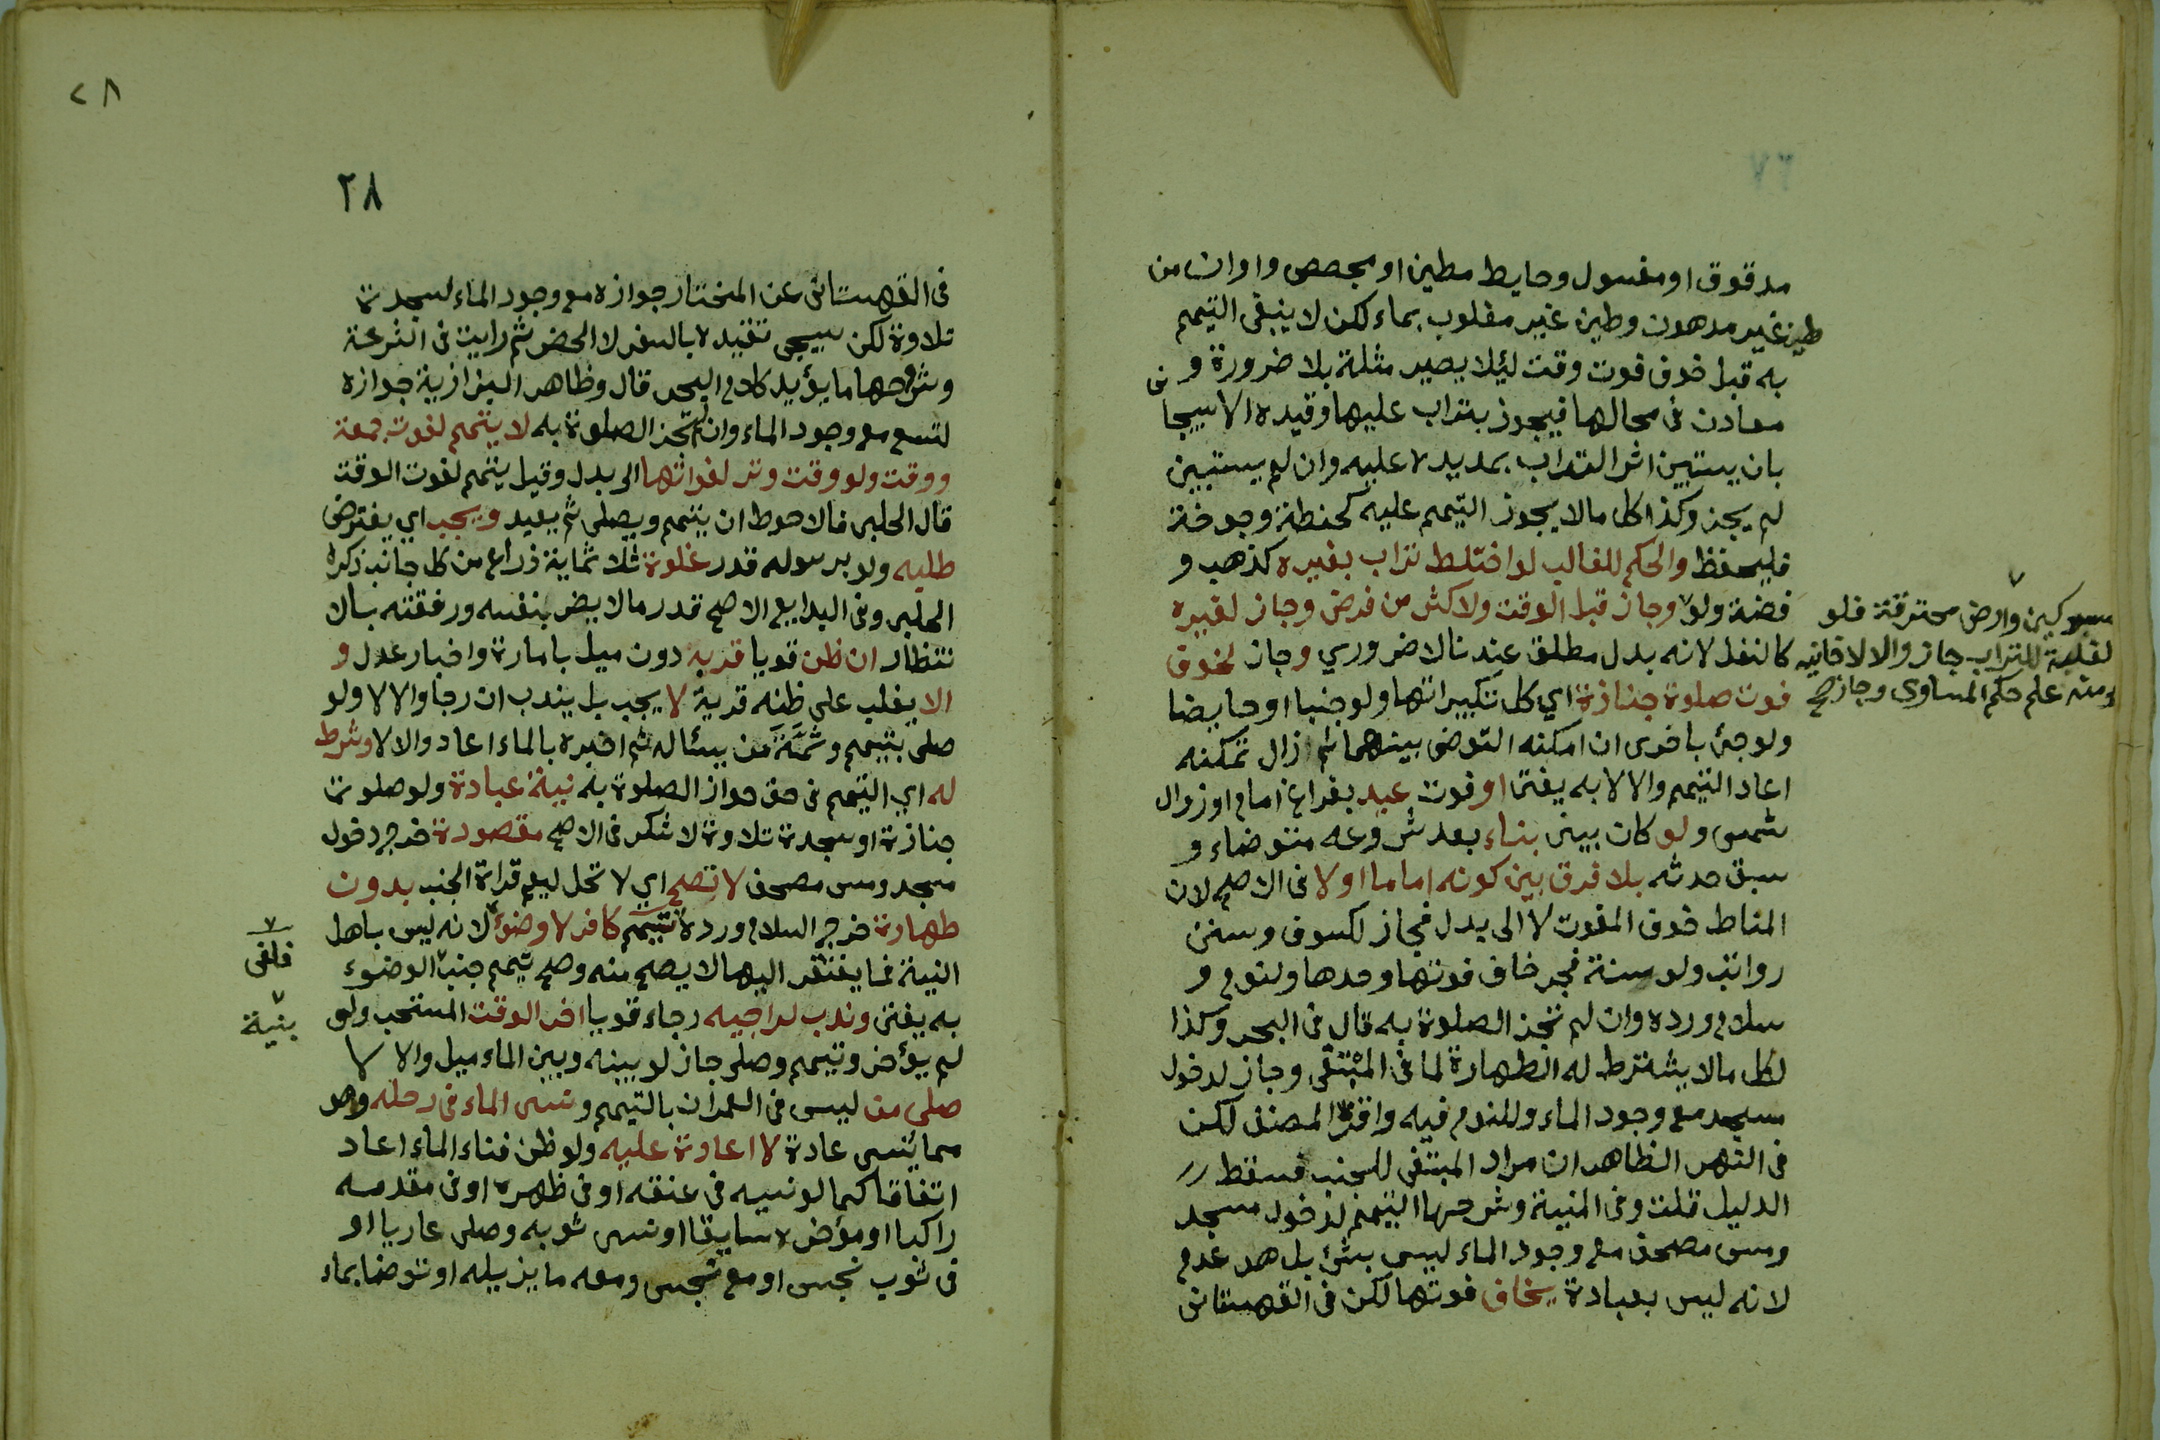 مدقوق او مغسول وحايط مطين او مجصص واوان من
طين غير مدهون وطين غير مغلوب بماء لكن لا ينبغى التيمم
به قبل خوف فوت وقت لئلا يصير مثلة بلا ضرورة و
معادن فى محالها فيجوز بتراب عليها وقيده الاسبيجا نى
بان يستبين اثر التراب بمديده عليه وان لم يستبين
لم يجز وكذا كل مالا يجوز التيمم عليه كحنطة وجوخة
فليحفظ والحكم للغالب لو اختلط تراب بغيره كذهب و
فضة ولو وجاز قبل الوقت ولاكثر من فرض وجاز لغيره
كالنفل لانه بدل مطلق عندنا لا ضروري وجاز لخوف
فوت صلوة جنازة اي كل تكبيراتها ولو جنبا او حايضا
ولو جئ باخرى ان امكنه التوضى بينهما ثم زال تمكنه
اعاد التيمم والا لا به يفتى او فوت عيد بفراغ امام او زوال
شمس ولو كان يبنى بناء بعد شروعه متوضاء و
سبق حدثه بلا فرق بين كونه اماما اولا فى الاصح لان
المناط خوف الفوت لا الى بدل فجاز لكسوف وسنن
رواتب ولو سنة فجر خاف فوتها وحدها ولنوم و
سلام ورده وان لم تجز الصلوة به قال فى البحر وكذا
لكل مالا يشترط له الطهارة لما فى المبتغى وجاز لدخول
مسجد مع وجود الماء وللنوم فيه واقره المصنف لكن
فى النهر الظاهر ان مراد المبتغى للجنب فسقط
الدليل قلت وفى المنية وشرحها التيمم لدخول مسجد
ومس مصحف مع وجود الماء ليس بشئ بل هو عدم
لانه ليس بعبادة يخاف فوتها لكن فى القهستانى
سركين وارض محترقة فلو
لغلبة للتراب جاز والا لا خانيه
ومنه علم حكم المساوى وجاز صح
٢٨
٢٨
فى القهستانى عن المختار جوازه مع وجود الماء لسجدة
تلاوة لكن سيجى تقييده بالسفر لا الحضر ثم رايت فى الشرعة
وشروحها ما يؤيد كلام البحر قال وظاهر البزازية جوازه
لتسع مع وجود الماء وان لم تجز الصلوة به لا يتيمم لفوت جمعة
ووقت ولو وقت وتر لفواتها الى بدل وقيل يتيمم لفوت الوقت
قال الحلبى فالاحوط ان يتيمم ويصلى ثم يعيد ويجب اي يفترض
طلبه ولو برسوله قدر غلوة ثلاثماية ذراع من كل جانب ذكره
الحلبى وفى البدايع الاصح قدر مالا يضر بنفسه ورفقته بالا
نتظار ان ظن قويا قربه دون ميل بامارة واخبار عدل و
الا يغلب على ظنه قربه لا يجب بل يندب ان رجا والا لا ولو
صلى بتيمم وثمة من يسئاله ثم اخبره بالماء اعاد والا لا وشرط
له اي التيمم فى حق جواز الصلوة به نية عبادة ولو صلوة
جنازة او سجدة تلاوة لا شكر فى الاصح مقصودة خرج دخول
مسجد ومس مصحف لا تصح اي لا تحل ليعم قراة الجنب بدون
طهارة خرج السلام ورده تيمم كافر لا وضوٴه لانه ليس باهل
النية فما يفتقر اليها لا يصح منه وصح تيمم جنب الوضوء
به يفتى وندب لراجيه رجاء قويا اخر الوقت المستحب ولو
لم يؤخر وتيمم وصلى جاز لو بينه وبين الماء ميل والا لا
صلى من ليس فى العمران بالتيمم ونسى الماء فى رحله وهو
مما يُنسى عادة لا اعادة عليه ولو ظن فناء الماء اعاد
اتفاقا كما لو نسيه فى عنقه او فى ظهره او فى مقدمه
راكبا او مؤخره سايقا او نسى ثوبه وصلى عاريا او
فى ثوب نجس او مع نجس ومعه ما يزيله او توضا بماء
فلغى
بنية